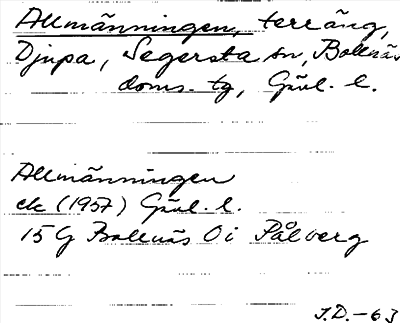 Allmänningen, terräng,
Djupa, Segersta sn, Bollnäs
doms. tg, Gävl. l.
Allmänningen
ek (1957) Gävl. l.
15 G Bollnäs Öi Pålberg
J.D.-63